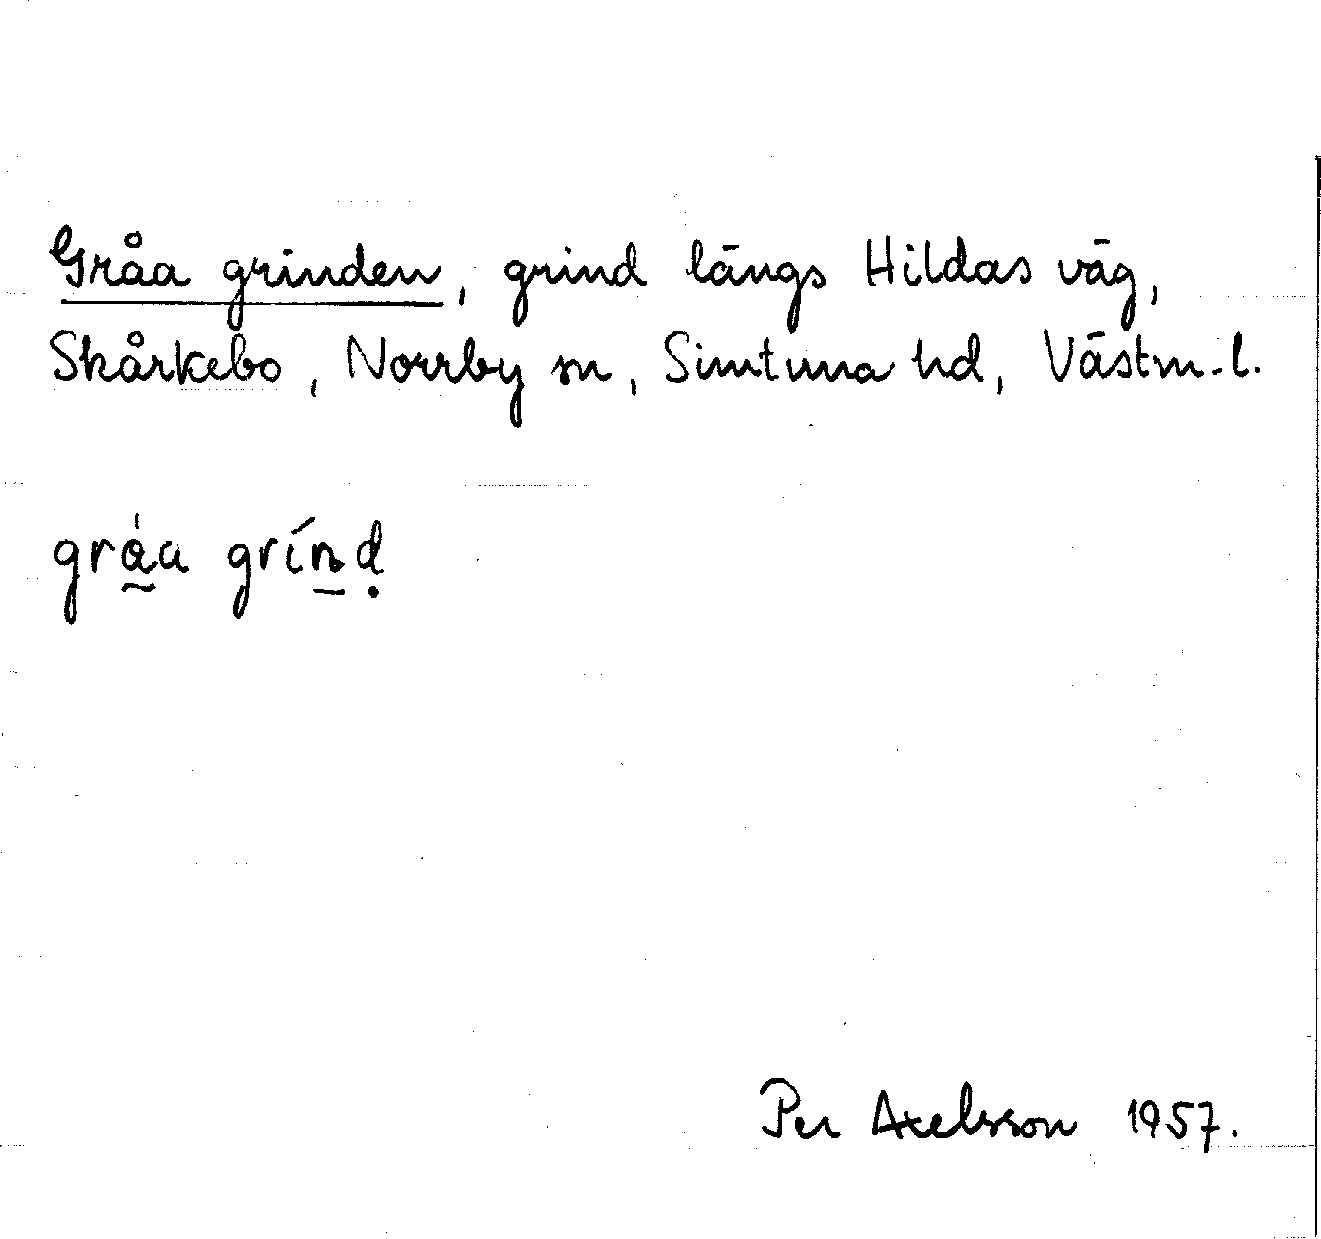 Gråa grinden, grind längs Hildas väg,
Skårkebo, Norrby sn, Simtuna hd, Västm. l.
gråa grínd
Per Axelsson 1957.